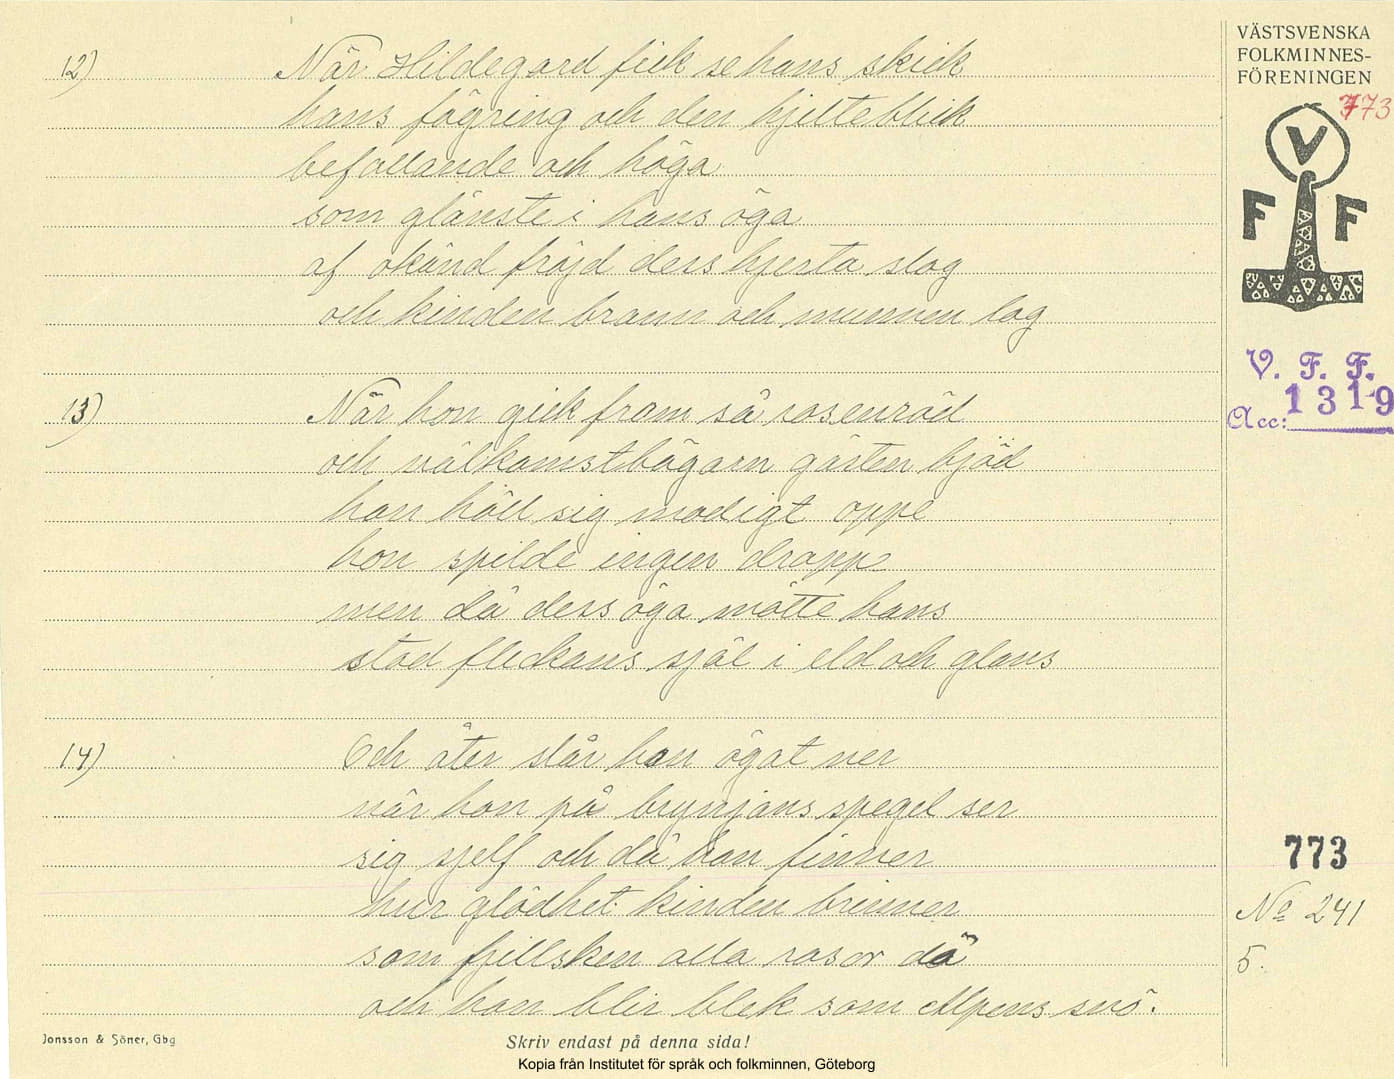 VÄSTSVENSKA
FOLKMINNES-
FÖRENINGEN
773
V
F F
V. F. F.
Acc: 1319
12) När Hildegard fick se hans skick
hans fägring och den hjelteblick
befallande och höga
som glänste i hans öga
af okänd fröjd dess hjerta slog
och kinden brann och munnen log
13) När hon gick fram så rosenröd
och välkomstbägarn gästen bjöd
hon höll sig modigt oppe
hon spilde ingen droppe
men då dess öga mötte hans
stod flickans själ i eld och glans
14) Och åter slår hon ögat ner
när hon på brynjans spegel ser
sig sjelf och då hon finner
hur glödhet kinden brinner
som fjellsken alla rosor dö
och hon blir blek som Alpens snö.
773
No 241
5.
Jonsson & Söner, Gbg
Skriv endast på denna sida!
Kopia från Institutet för språk och folkminnen, Göteborg